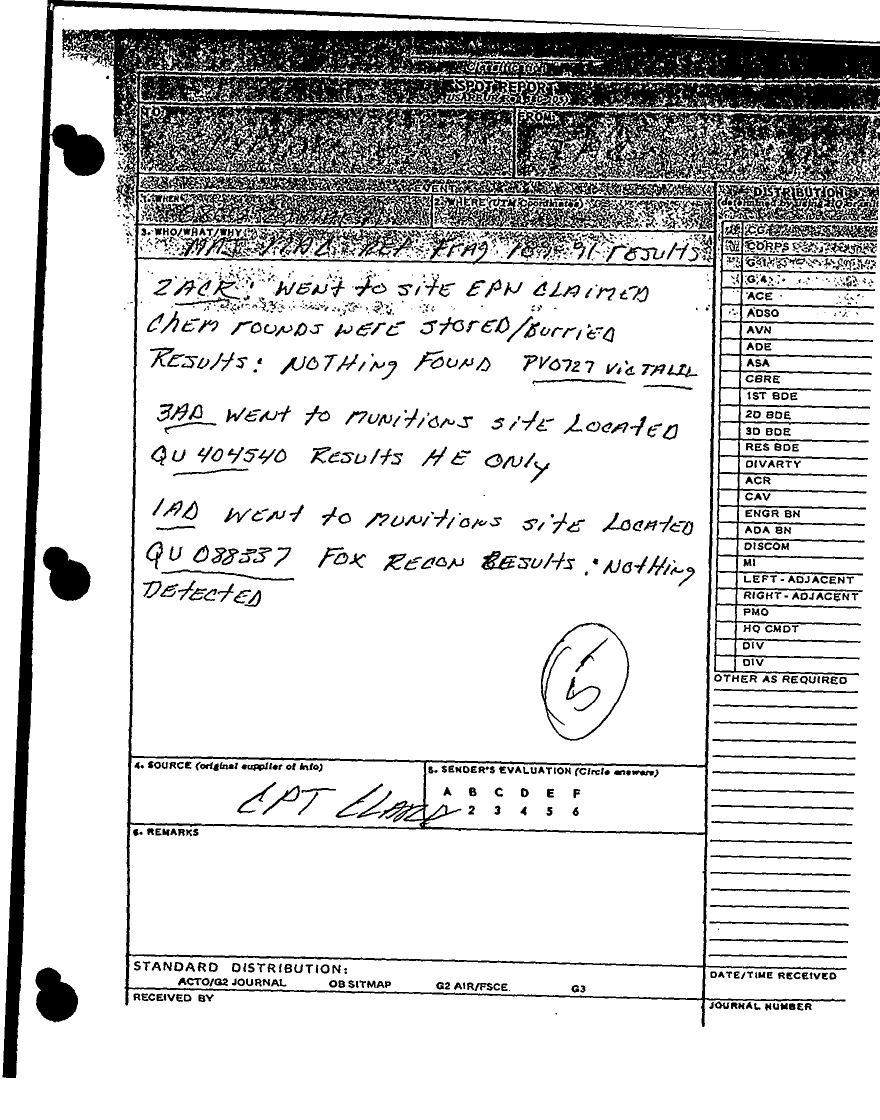 Classification
SPOT REPORT
TO:
FROM:
EVENT
1. WHEN
2. WHERE (UTM Coordinates)
3. WHO/WHAT/WHY
FRAG 91 RESULTS
2ACR: WENT to SITE EPW CLAIMED
CHEM rOUNDS WERE STORED/BurriED
RESULTS: NOTHING FOUND PV0727 Vic TALIL
3AD WENT to MUNitiONS SitE LOCAtED
QU 404540 RESULTS HE ONLy
1AD WENT to MUNitiONS SitE LOCAtED
QU 088337 FOX RECON RESULtS: NOtHiNg
DEtECtED
6
4. SOURCE (original supplier of info)
CPT
5. SENDER'S EVALUATION (Circle answers)
A B C D E F
2 3 4 5 6
6. REMARKS
STANDARD DISTRIBUTION:
ACTO/G2 JOURNAL OB SITMAP G2 AIR/FSCE G3
RECEIVED BY
DISTRIBUTION
CG
CORPS
G1
G4
ACE
ADSO
AVN
ADE
ASA
CBRE
1ST BDE
2D BDE
3D BDE
RES BDE
DIVARTY
ACR
CAV
ENGR BN
ADA BN
DISCOM
MI
LEFT-ADJACENT
RIGHT-ADJACENT
PMO
HQ CMDT
DIV
DIV
OTHER AS REQUIRED
DATE/TIME RECEIVED
JOURNAL NUMBER